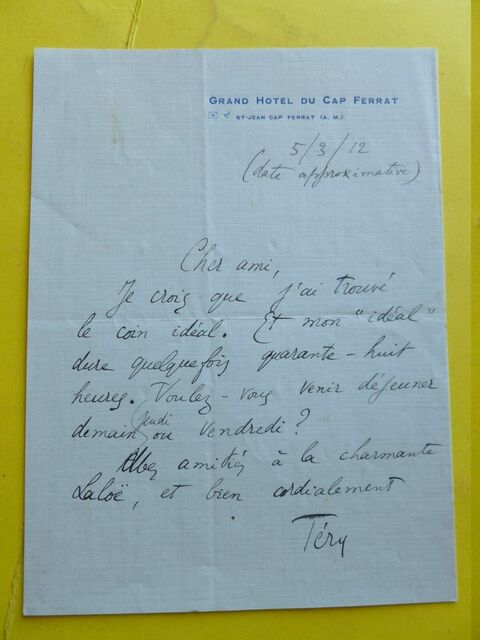 GRAND HOTEL DU CAP FERRAT
ST-JEAN CAP FERRAT (A. M.)
5/3/12
(date approximative)
Cher ami,
Je crois que j'ai trouvé
le coin idéal. Et mon "idéal"
dure quelquefois quarante-huit
heures. Voulez-vous venir déjeuner
demain jeudi ou vendredi ?
Mes amitiés à la charmante
Laloë, et bien cordialement
Téry